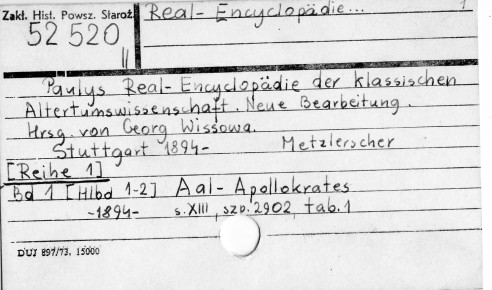 Zakł. Hist. Powsz. Staroż. Real-Encyclopädie... 1
52 520
II
Paulys Real-Encyclopädie der klassischen
Altertumswissenschaft. Neue Bearbeitung.
Hrsg. von Georg Wissowa.
Stuttgart 1894- Metzlerscher
[Reihe 1]
Bd 1 [Hlbd 1-2] Aal-Apollokrates
-1894- s. XIII, szp. 2902, tab. 1
DUJ 897/73. 15000